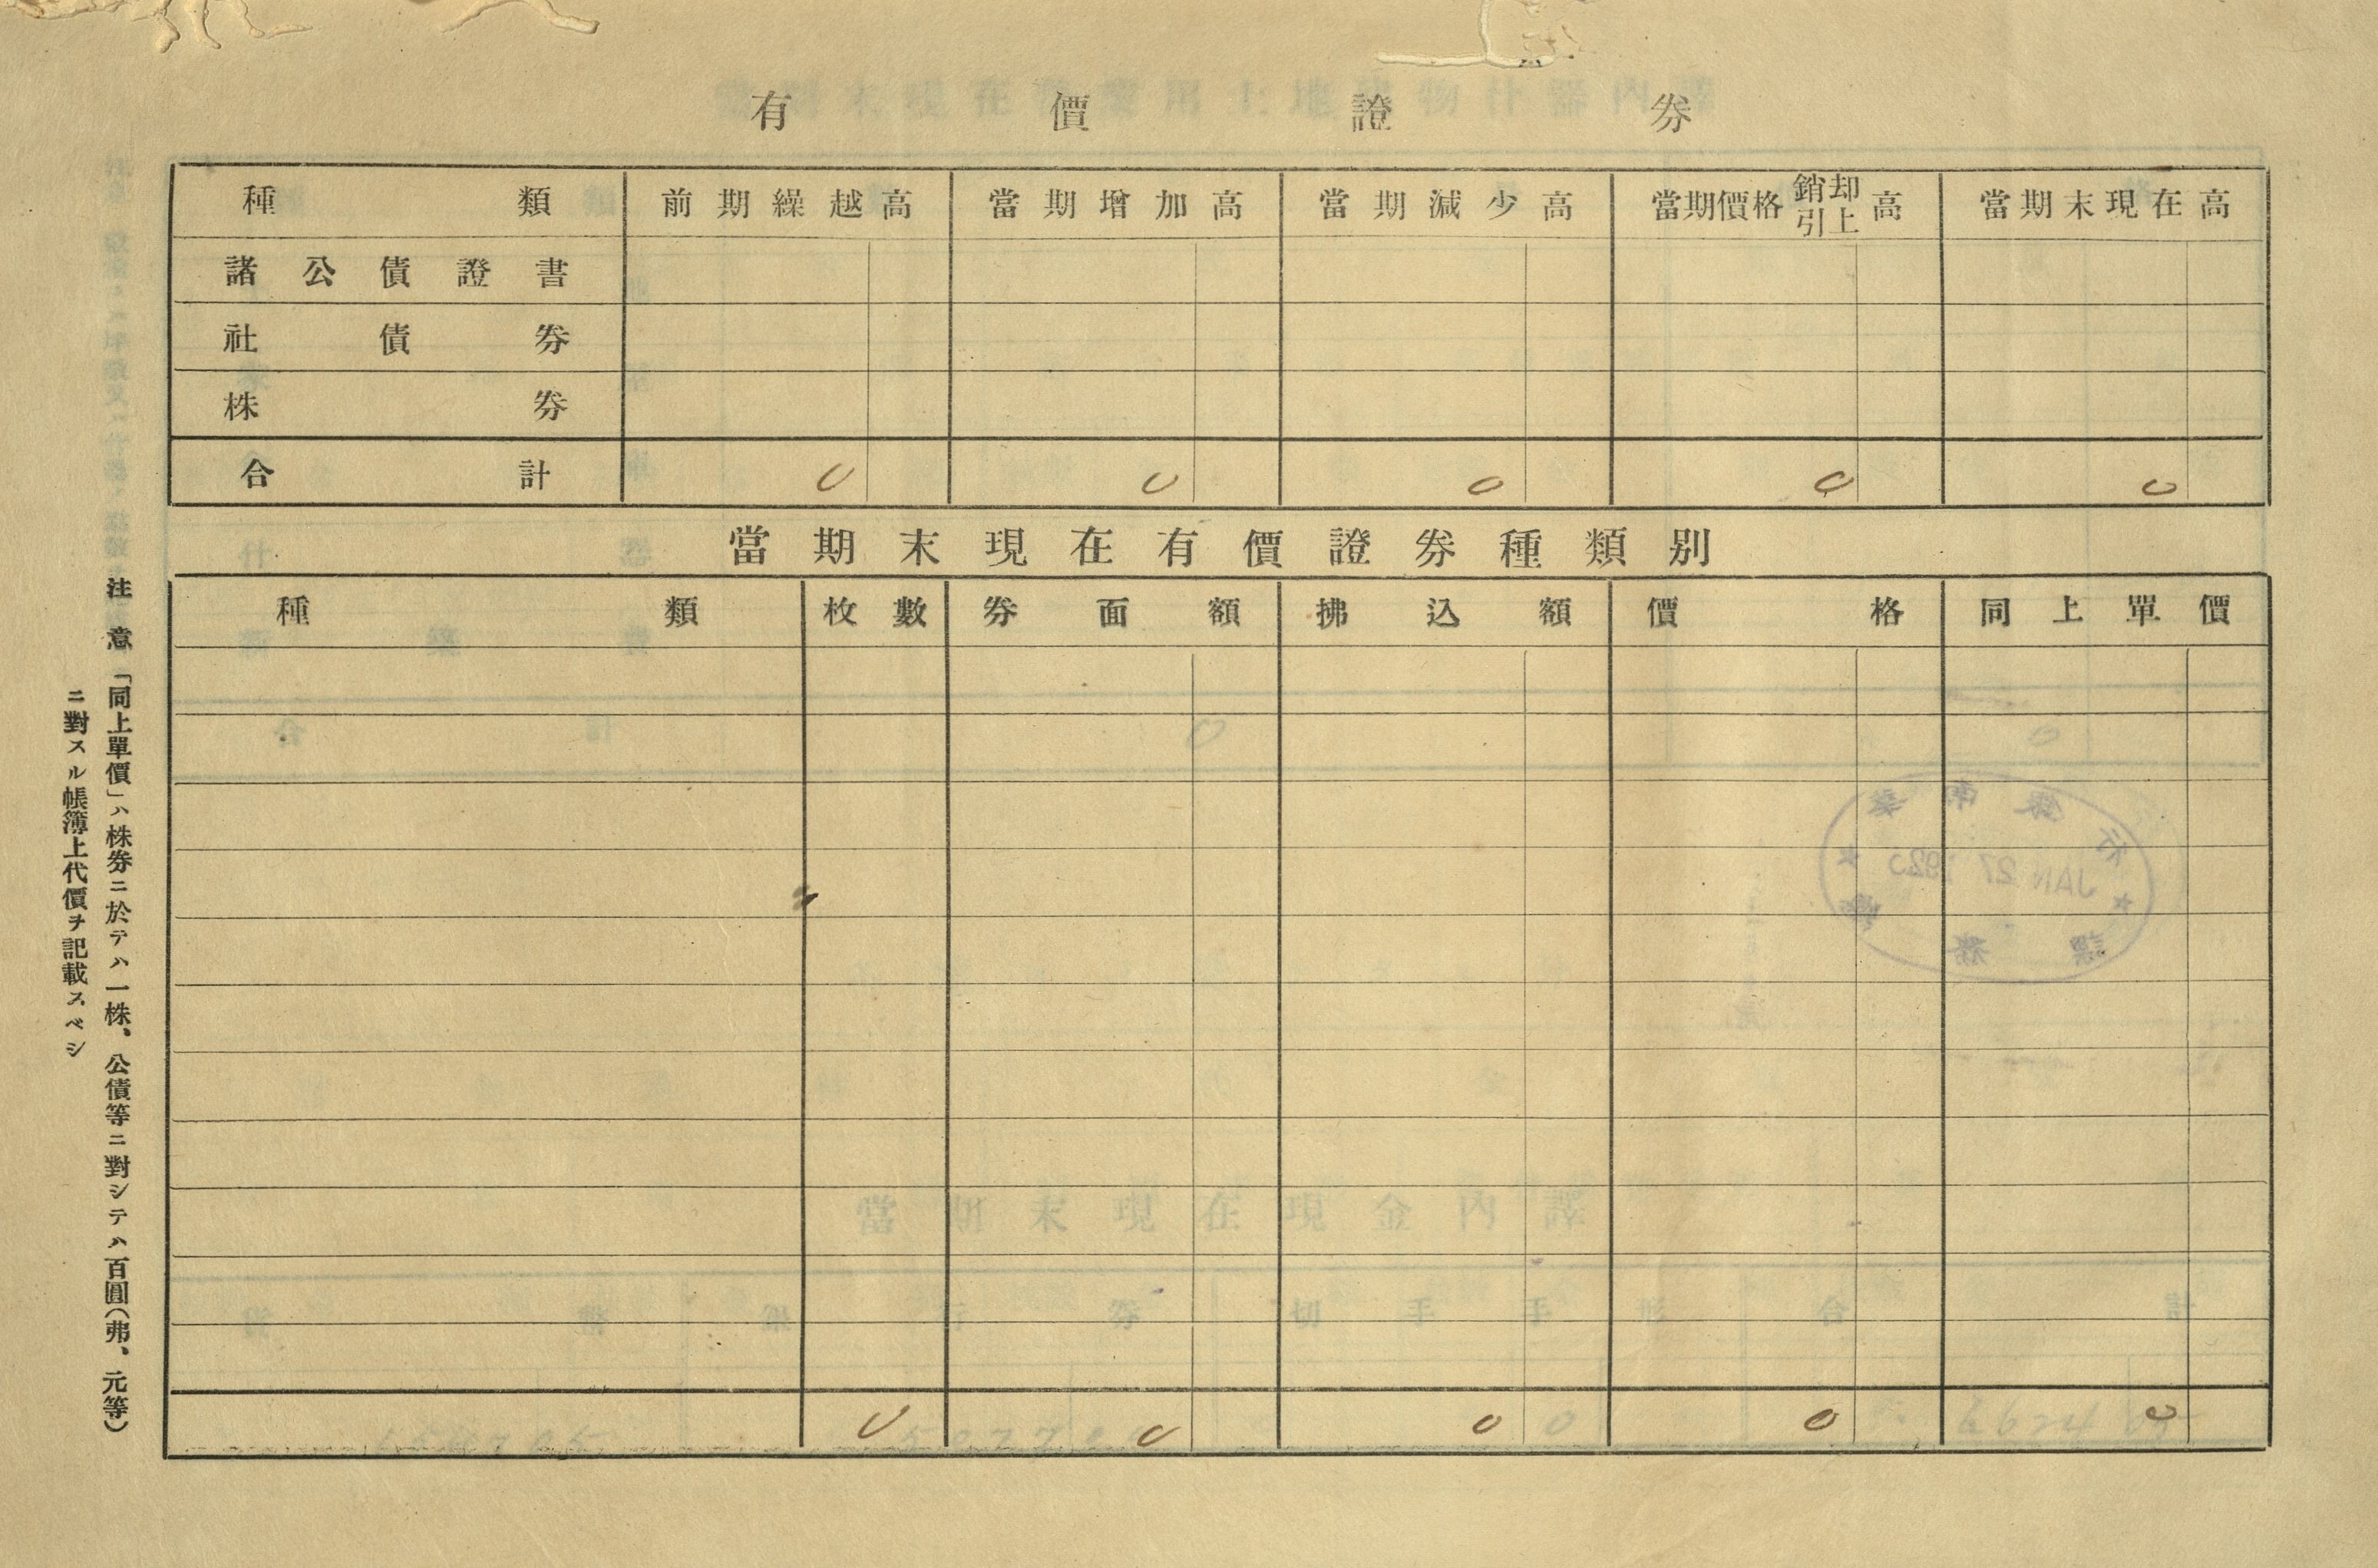 有價證券
種類 前期繰越高 當期增加高 當期減少高 當期價格銷却引上高 當期末現在高
諸公債證書
社債券
株券
合計 0 0 0 0 0
當期末現在有價證券種類別
種類 枚數 券面額 拂込額 價格 同上單價
0 0 0 0 0
注意「同上單價」ハ株券ニ於テハ一株、公債等ニ對シテハ百圓(弗、元等)
ニ對スル帳簿上代價ヲ記載スベシ
JAN 27